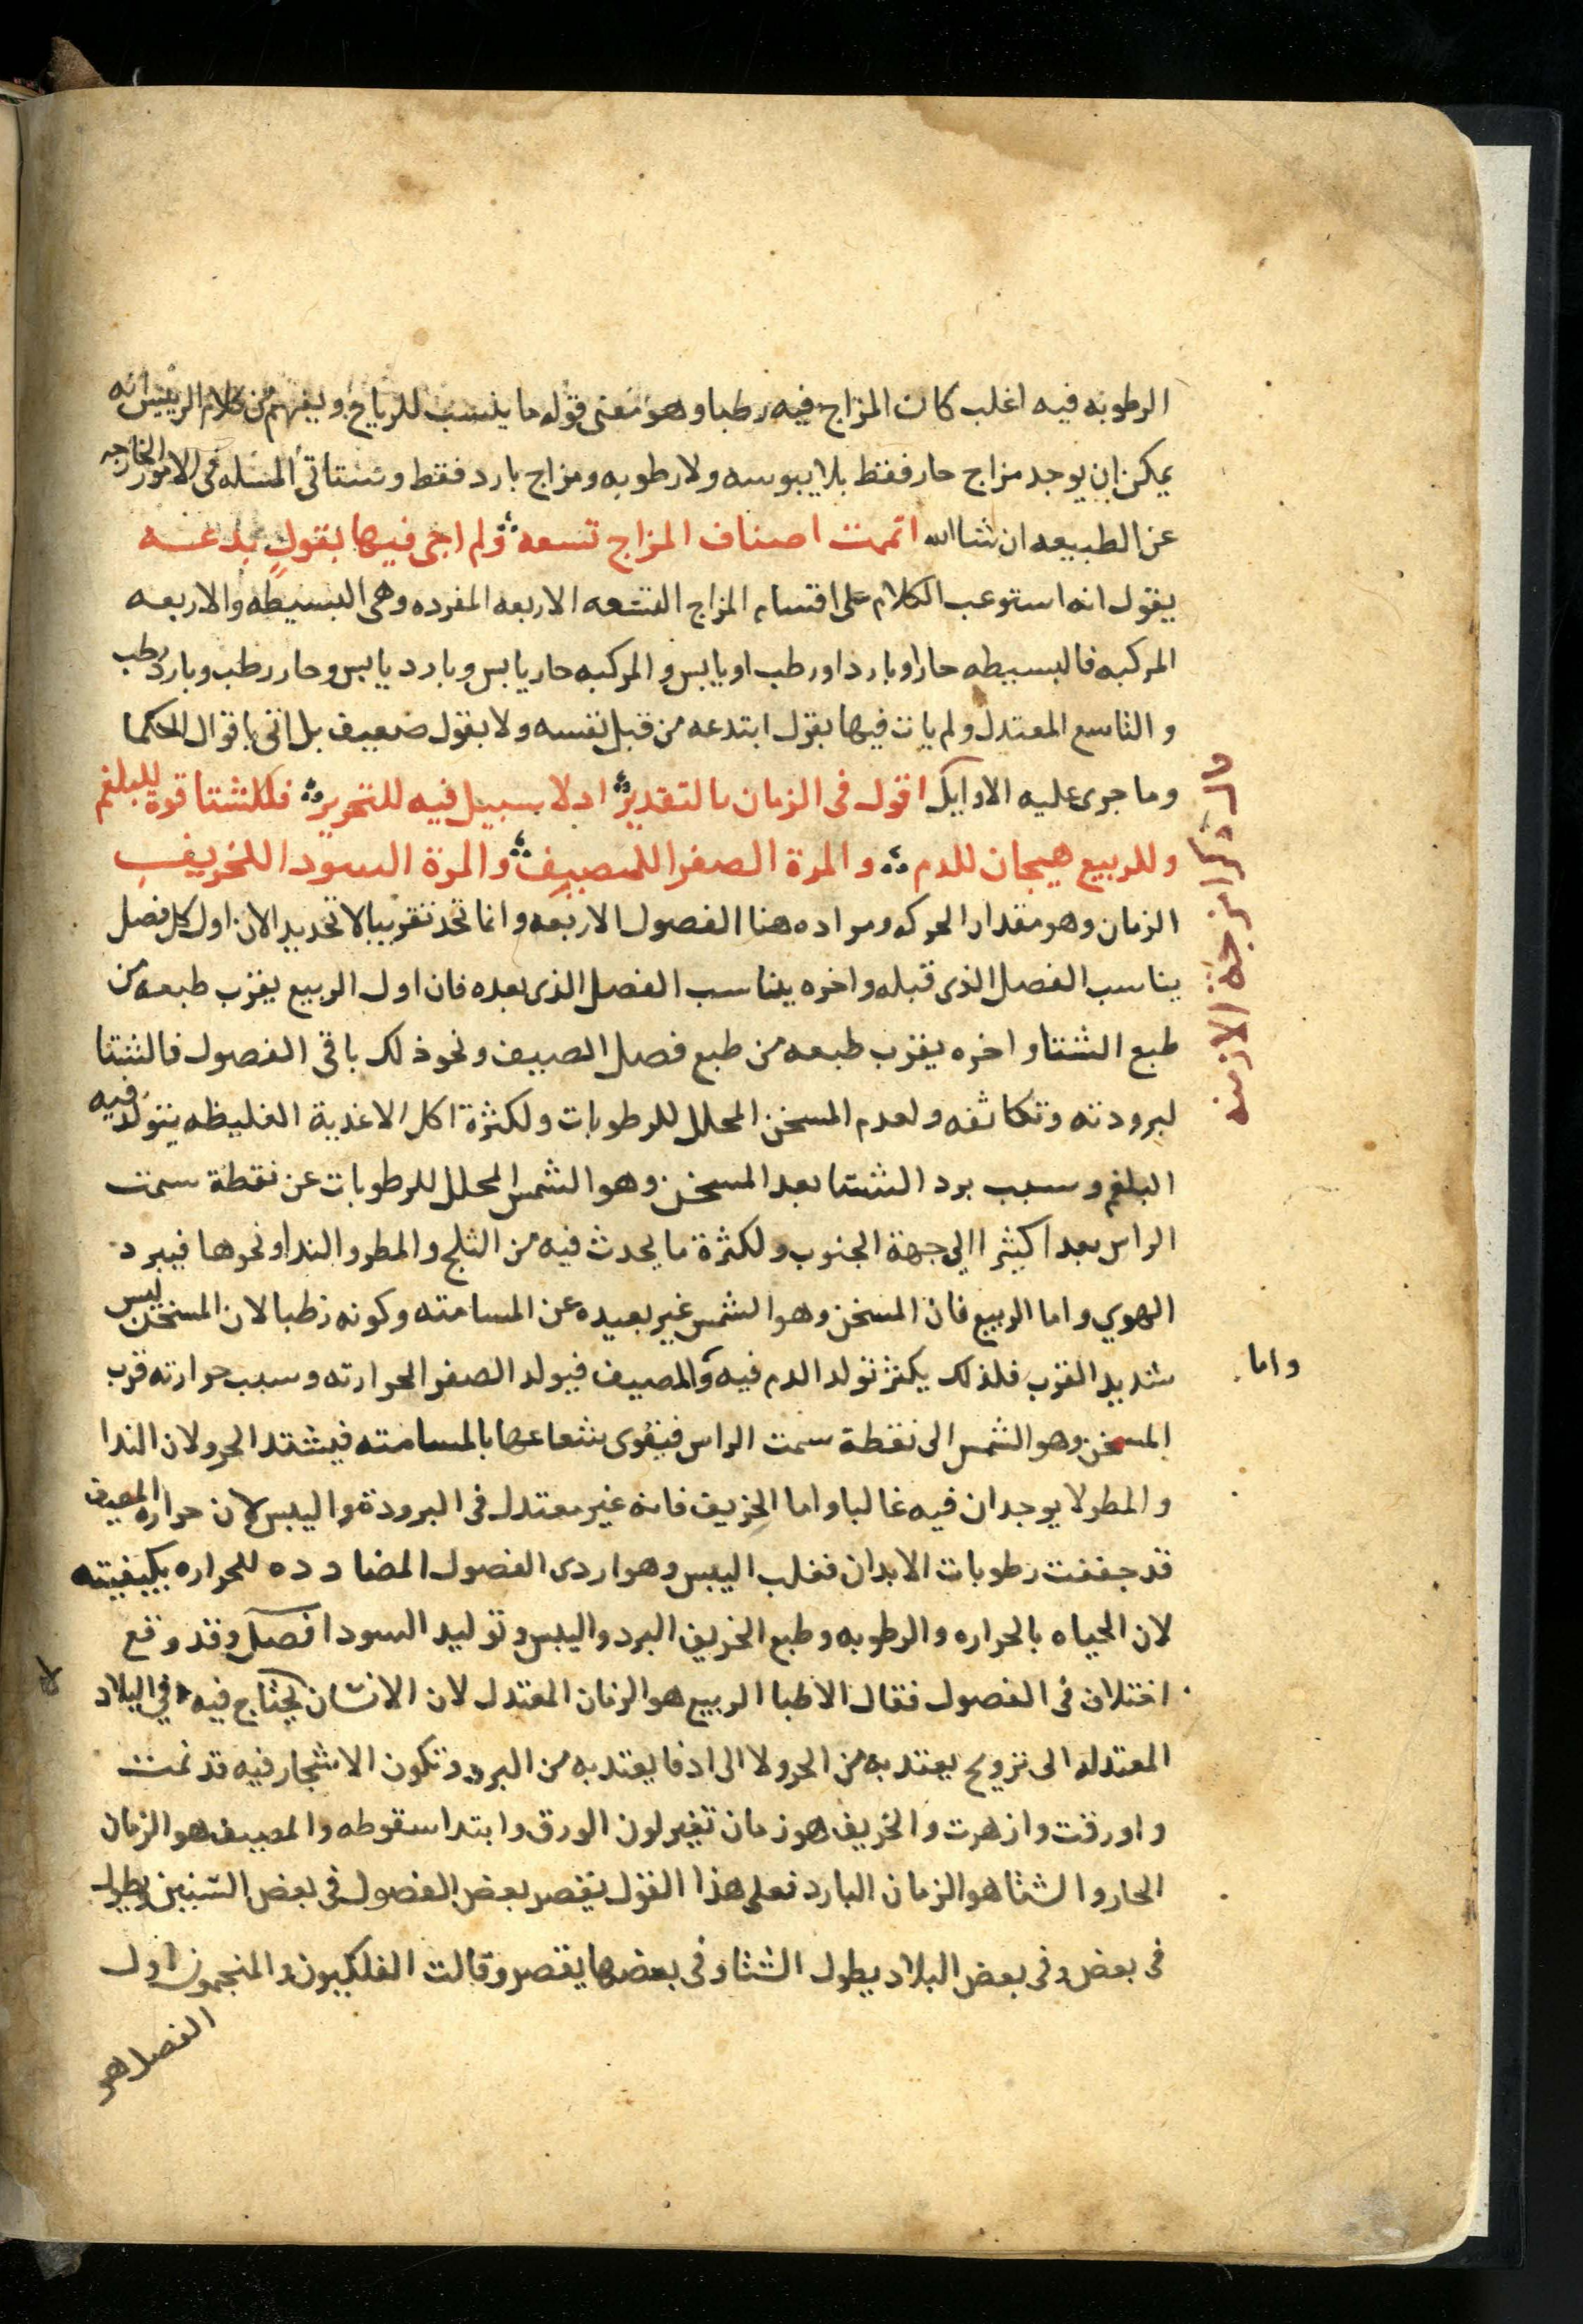 الرطوبه فيه اغلب كان المزاج فيه رطبا وهو معنى قوله ما ينسب للرياح ويفهم من كلام الرييس انه
يمكن ان يوجد مزاج حار فقط بلا يبوسه ولا رطوبه ومزاج بارد فقط وستاتى المسله فى الامور الخارجه
عن الطبيعه ان شا الله اتممت اصناف المزاج تسعه ولم اجى فيها بقولٍ بدعه
يقول انه استوعب الكلام على اقسام المزاج التسعه الاربعه المفرده وهى البسيطه والاربعه
المركبه فالبسيطه حار او بارد او رطب او يابس والمركبه حار يابس وبارد يابس وحار رطب وبارد رطب
والتاسع المعتدل ولم يات فيها بقول ابتدعه من قبل نفسه ولا بقول ضعيف بل اتى باقوال الحكما
وما جرى عليه الاوايل اقول فى الزمان بالتقدير اد لا سبيل فيه للتحرير فللشتا قوة للبلغم
وللربيع هيجان للدم والمرة الصفرا للمصيف والمرة السودا للخريف
الزمان وهو مقدار الحركه ومراده هنا الفصول الاربعه وانما تحد تقريبا لا تحديدا لان اول كل فصل
يناسب الفصل الذى قبله واخره يناسب الفصل الذى بعده فان اول الربيع يقرب طبعه من
طبع الشتا واخره يقرب طبعه من طبع فصل الصيف ونحو ذلك باقى الفصول فالشتا
لبرودته وتكاثفه ولعدم المسخن المحلل للرطوبات ولكثرة اكل الاغدية الغليظه يتولد فيه
البلغم وسبب برد الشتا بعد المسخن وهو الشمس المحلل للرطوبات عن نقطة سمت
الراس بعدا كثيرا الى جهة الجنوب ولكثرة ما يحدث فيه من الثلج والمطر والندا ونحوها فيبرد
الهوي واما الربيع فان المسخن وهو الشمس غير بعيده عن المسامته وكونه رطبا لان المسخن ليس
شديد القرب فلذلك يكثر تولد الدم فيه والمصيف فيولد الصفرا لحرارته وسبب حرارته قرب
واما
المسخن وهو الشمس الى نقطة سمت الراس فيقوى شعاعها بالمسامته فيشتد الحر ولان الندا
والمطر لا يوجدان فيه غالبا واما الخريف فانه غير معتدل فى البرودة واليبس لان حراره المصيف
قد جففت رطوبات الابدان فغلب اليبس وهو اردى الفصول المضادده للحراره بكيفيته
لان الحياه بالحراره والرطوبه وطبع الخريف البرد واليبس وتوليد السودا فصل وقد وقع
اختلاف فى الفصول فقال الاطبا الربيع هو الزمان المعتدل لان الانسان يحتاج فيه فى البلاد
لا
المعتدله الى ترويح يعتد به من الحر ولا الى ادفا يعتد به من البرد وتكون الاشجار فيه قد نمت
واورقت وازهرت والخريف هو زمان تغير لون الورق وابتدا سقوطه والمصيف هو الزمان
الحار والشتا هو الزمان البارد فعلى هذا القول يقصر بعض الفصول فى بعض السنين ويطول
فى بعض وفى بعض البلاد يطول الشتا وفى بعضها يقصر وقالت الفلكيون والمنجمون اول
الفصل هو
امزجة الازمنه